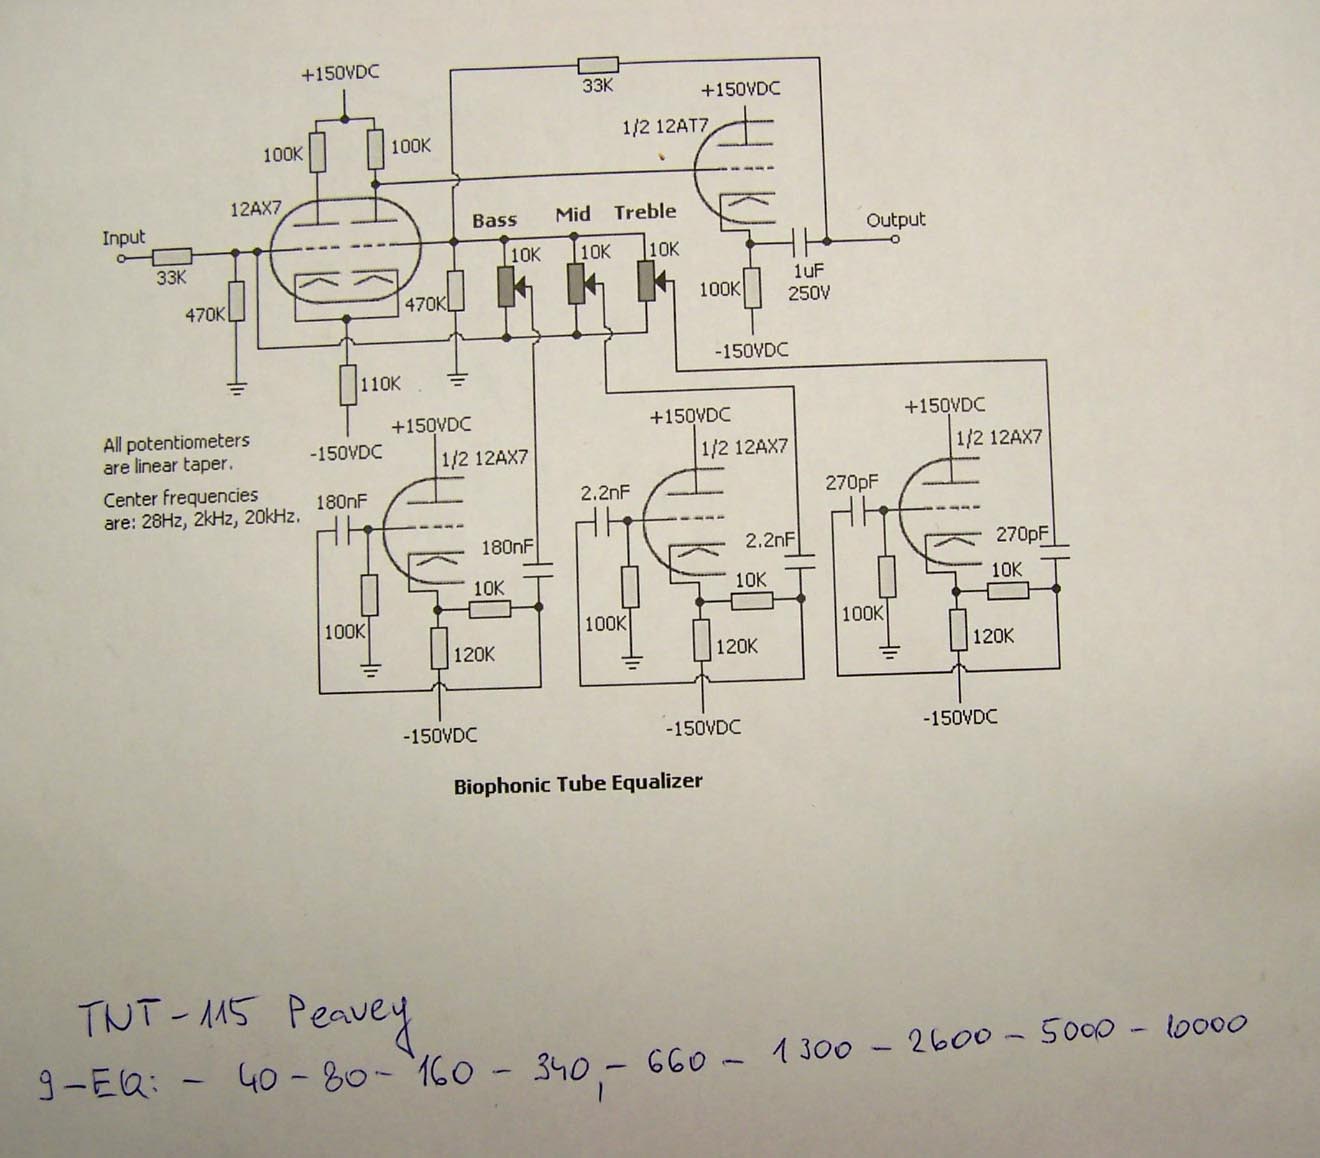 +150VDC
33K
+150VDC
1/2 12AT7
100K
100K
12AX7
Bass
Mid
Treble
Output
Input
10K
10K
10K
33K
470K
470K
100K
1uF
250V
-150VDC
110K
All potentiometers
are linear taper.
-150VDC
Center frequencies
are: 28Hz, 2kHz, 20kHz.
+150VDC
1/2 12AX7
180nF
180nF
10K
100K
120K
-150VDC
+150VDC
1/2 12AX7
2.2nF
2.2nF
10K
100K
120K
-150VDC
+150VDC
1/2 12AX7
270pF
270pF
10K
100K
120K
-150VDC
Biophonic Tube Equalizer
TNT-115 Peavey
9-EQ: - 40 - 80 - 160 - 340,- 660 - 1300 - 2600 - 5000 - 10000